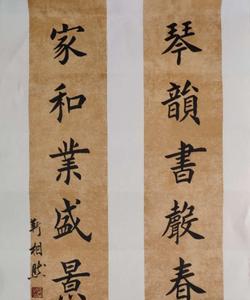 琴韻書聲春
家和業盛景
靳相然